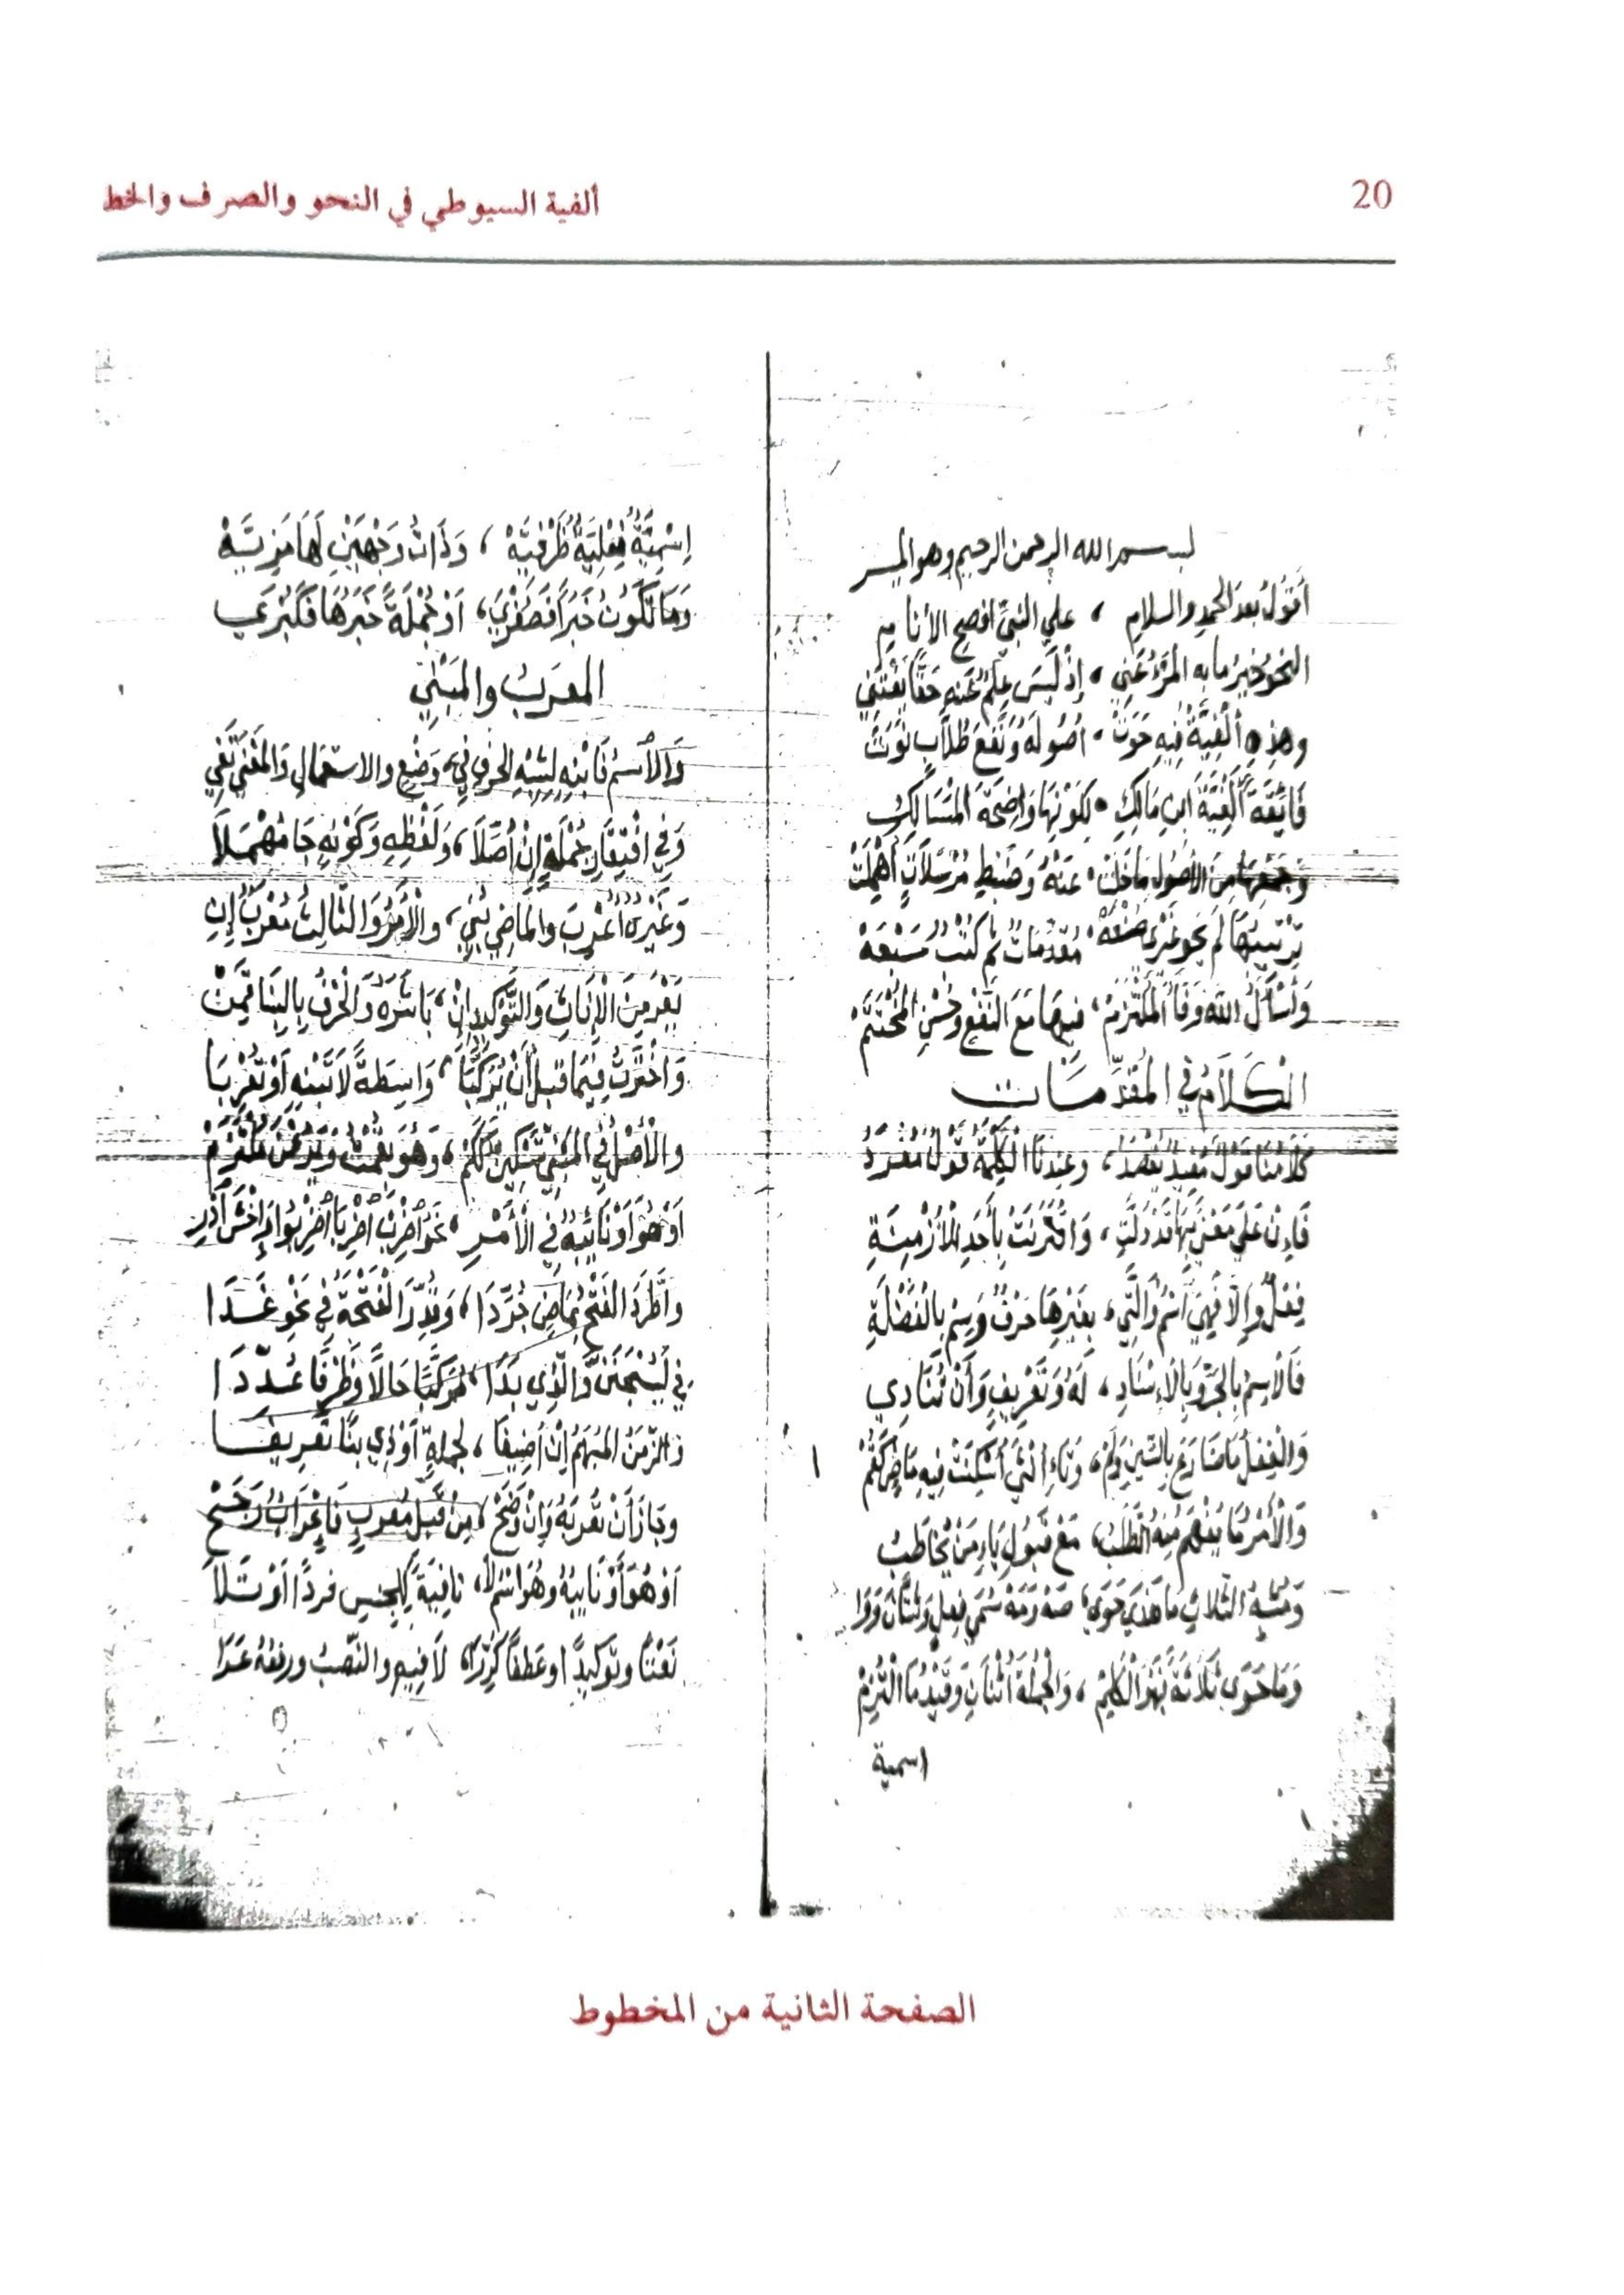 20
ألفية السيوطي في النحو والصرف والخط
بسم الله الرحمن الرحيم وهو الميسر
أَقُولُ بعدَ الحمدِ والسلامِ ، علي النبيِّ افصحِ الأنامِ
النحوُ خيرُ مابه المرْءُ عُنِي ، إذْ لَيْسَ عِلْمٌ عَنهُ حَقًّا يَغْتَنِي
وهذِهِ ألْفِيَّةٌ فِيهِ حَوَتْ ، أُصُولَهُ وَنَفْعَ طُلَّابٍ نَوَتْ
فَائِقَةً أَلْفِيَّةَ ابنِ مَالِكِ ، لِكَوْنِهَا وَاضِحَةَ المَسَالِكِ
وَجَمْعِهَا مِنَ الأُصُولِ مَا خَلَتْ ، عَنْهُ وَضَبْطِ مُرْسَلَاتٍ أُهْمِلَتْ
تَرْتِيبُهَا لَمْ يَحْوِ غَيْرِي صُنْعَهُ ، مُقَدِّمَاتٌ ثُمَّ كُتْبٌ سَبْعَهْ
وَأَسْأَلُ اللهَ وَفَاءَ المُلْتَزَمْ ، فِيهَا مَعَ النَّفْعِ وَحُسْنِ المُخْتَتَمْ
الكَلَامُ في المُقَدِّمَات
كَلَامُنَا قَوْلٌ مُفِيدٌ يُقْصَدُ ، وعِندنَا الكَلِمَةُ قَوْلٌ مُفْرَدُ
فَإِنْ عَلَى مَعْنًى بِهَا قَدْ دَلَّتِ ، وَاقْتَرَنَتْ بِأَحَدِ الأَزْمِنَةِ
فِعْلٌ وإلَّا فَهِيَ اسْمٌ وَالَّتِي ، بِغَيْرِهَا حَرْفٌ وَسِمْ بِالفَضْلَةِ
فَالاِسمُ بِالجَرِّ وَبِالإِسْنَادِ ، لَهُ وَتَعْرِيفٍ وَأَنْ تُنَادِي
وَالفِعْلُ مَا ضَارَعَ بِالسِّينِ وَلَمْ ، وَتَاءِ انْثَى أُسْكِنَتْ فِيهِ مَاضٍ كَنُمْ
وَالأَمْرُ مَا يُفْهَمُ مِنْهُ الطَّلَبُ ، مَعْ قَبُولِ يَاءِ مَنْ يُخَاطَبُ
وَمُشْبِهُ الثلاثِ ما هَذَي حَوَى ، صَهْ وَمَهْ سُمِي فِعْلٍ
وَمَا حَوَى ثَلَاثَةً فَهْوَ الكَلِمْ ، وَالجُمْلَةُ اثْنَانِ وَقَيْدُ مَا الْتُزِمْ
اسمية
اِسْمِيَّةٌ فِعْلِيَّةٌ ظَرْفِيَّهْ ، وَذَاتُ وَجْهَيْنِ لَهَا مَزِيَّهْ
وَمَا تَكُونُ خَبَرًا فَصُغْرَي ، اَوْ جُمْلَةً خَبَرُهَا فَكُبْرَي
المعرَبُ والمَبْنِي
وَالاْسمُ فَابْنِهِ لِشِبْهِ الحَرفِ في ، وَضْعٍ والاستعمالِ وَالمَعْنَى تَفِي
وَفي افْتِقَارِ جُمْلَةٍ إِنْ أُصِّلَا ، وَلَفْظِهِ وَكَوْنِهِ جَا مُهْمَلَا
وَغَيْرُهُ أُعْرِبَ والمَاضِي بُنِي ، والأَمْرُ وَالثَّالِثُ مُعْرَبٌ إِنِ
يَعْرَ مِنَ الإِنَاثِ وَالتَّوْكِيدِ إِنْ ، بَاشَرَهُ وَالحَرْفُ بِالبِنَا قَمِنْ
وَاخْتَرْتُ فِيمَا قَبْلَ أَنْ يُرَكَّبَا ، وَاسِطَةً لَا تَبْنِهِ أَوْ تُعْرِبَا
والأَصْلُ في المَبْنِي تَسْكِينٌ كَكَمْ ، وَهُوَ بِفِعْلٍ
اَوْ هُوَ أَوْ نَائِبُهُ في الأَمْرِ ، نَحْوُ اضْرِبْ اضْرِبَا اضْرِبُوا وَاخْشَ ادْرِ
واطَّرَدَ الفَتْحُ بِمَاضٍ جُرِّدَا ، وَقُدِّرَ الفَتْحَةُ في نَحْوِ غَدَا
في لَيُسْجَنَنَّ وَالَّذِي بَدَا ، مُرَكَّبًا حَالًا وَظَرْفًا عَدَدَا
والزَّمَنُ المُبْهَمُ إِنْ أُضِيفَا ، لِجُملةٍ اَوْ ذِي بِنًا تَعْرِيفَا
وجَازَ أَنْ تُعْرِبَهُ وَإِنْ وَضَحْ ، مِنْ قَبْلِ مُعْرَبٍ فَإِعْرَابٌ رَجَحْ
اَوْ هُوَ أَوْ نَايِبُهُ وهُوَ اسْمُ لَا ، نَافِيَةً لِلجِنسِ فردًا اَوْ تَلَا
نَعْتًا وتَوكيدًا اوعَطفًا كُرِّرَا ، لَا فِيهِ والنَّصْبُ ورفعُهُ عَدَا
الصفحة الثانية من المخطوط